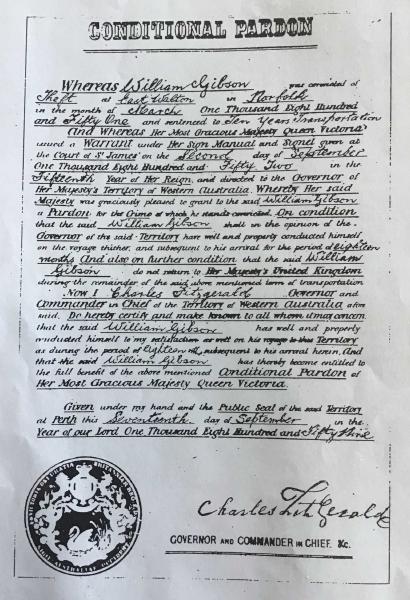 CONDITIONAL PARDON
Whereas William Gibson was convicted of
Theft at East Walton in Norfolk
in the month of March One Thousand Eight Hundred
and Fifty One and sentenced to Ten Years Transportation
And Whereas Her Most Gracious Majesty Queen Victoria
issued a Warrant under Her Sign Manual and Signet given at
the Court of St James' on the Second day of September
One Thousand Eight Hundred and Fifty Two in the
Fifteenth Year of Her Reign, and directed to the Governor of
Her Majesty's Territory of Western Australia. Whereby Her said
Majesty was graciously pleased to grant to the said William Gibson
a Pardon for the Crime of which he stands convicted. On condition
that the said William Gibson shall in the opinion of the
Governor of the said Territory have well and properly conducted himself
on the voyage thither, and subsequent to his arrival for the period of eighteen
months And also on further condition that the said William
Gibson do not return to Her Majesty's United Kingdom
during the remainder of the said above mentioned term of transportation
Now I Charles Fitzgerald Governor and
Commander in Chief of the Territory of Western Australia afore
said. Do hereby certify and make known to all whom it may concern
that the said William Gibson has well and properly
conducted himself to my satisfaction as well on his voyage to this Territory
as during the period of eighteen mths subsequent to his arrival herein. And
that the said William Gibson has thereby become entitled to
the full benefit of the above mentioned Conditional Pardon of
Her Most Gracious Majesty Queen Victoria.
Given under my hand and the Public Seal of the said Territory
at Perth this Seventeenth day of September in the
Year of our Lord One Thousand Eight Hundred and Fifty
Charles FitzGerald
GOVERNOR AND COMMANDER IN CHIEF. &c.